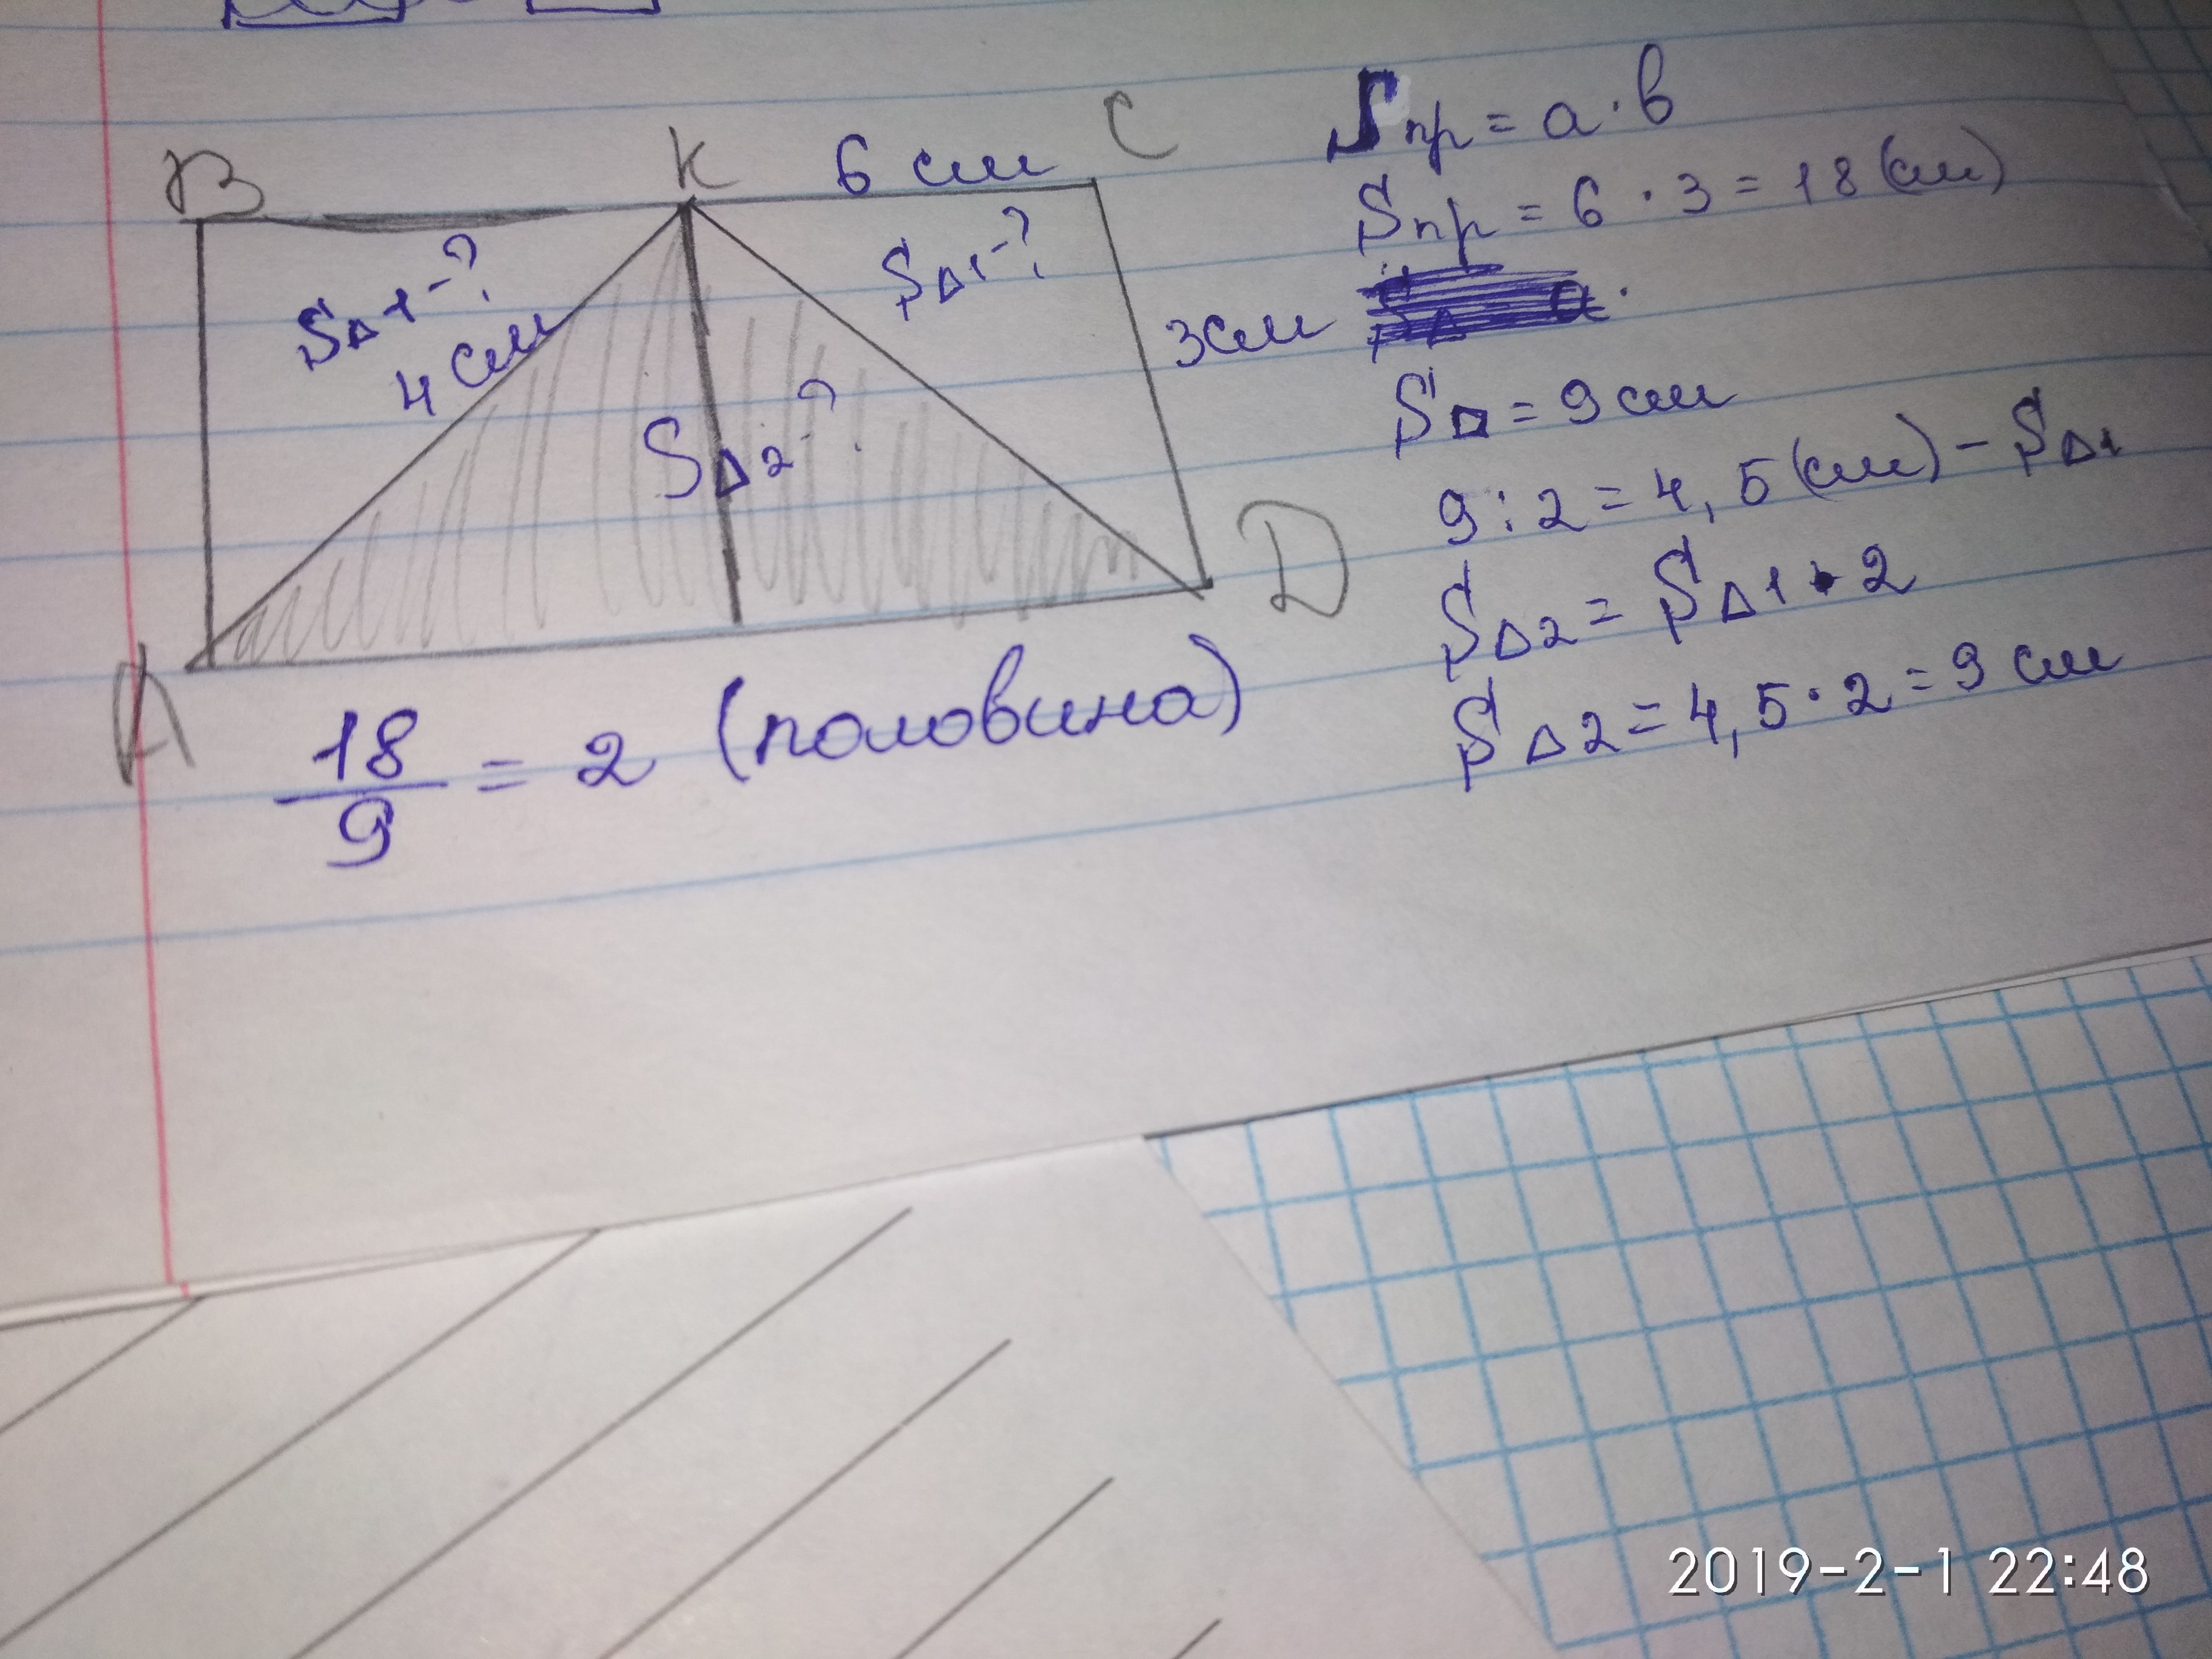 B K 6 см C
S△1-?
4 см
S△1-?
S△2-?
3см
A D
18/9 = 2 (половина)
Sпр = а · в
Sпр = 6 · 3 = 18 (см)
S△ = 9 см
9 : 2 = 4,5 (см) - S△1
S△2 = S△1 · 2
S△2 = 4,5 · 2 = 9 см
2019-2-1 22:48